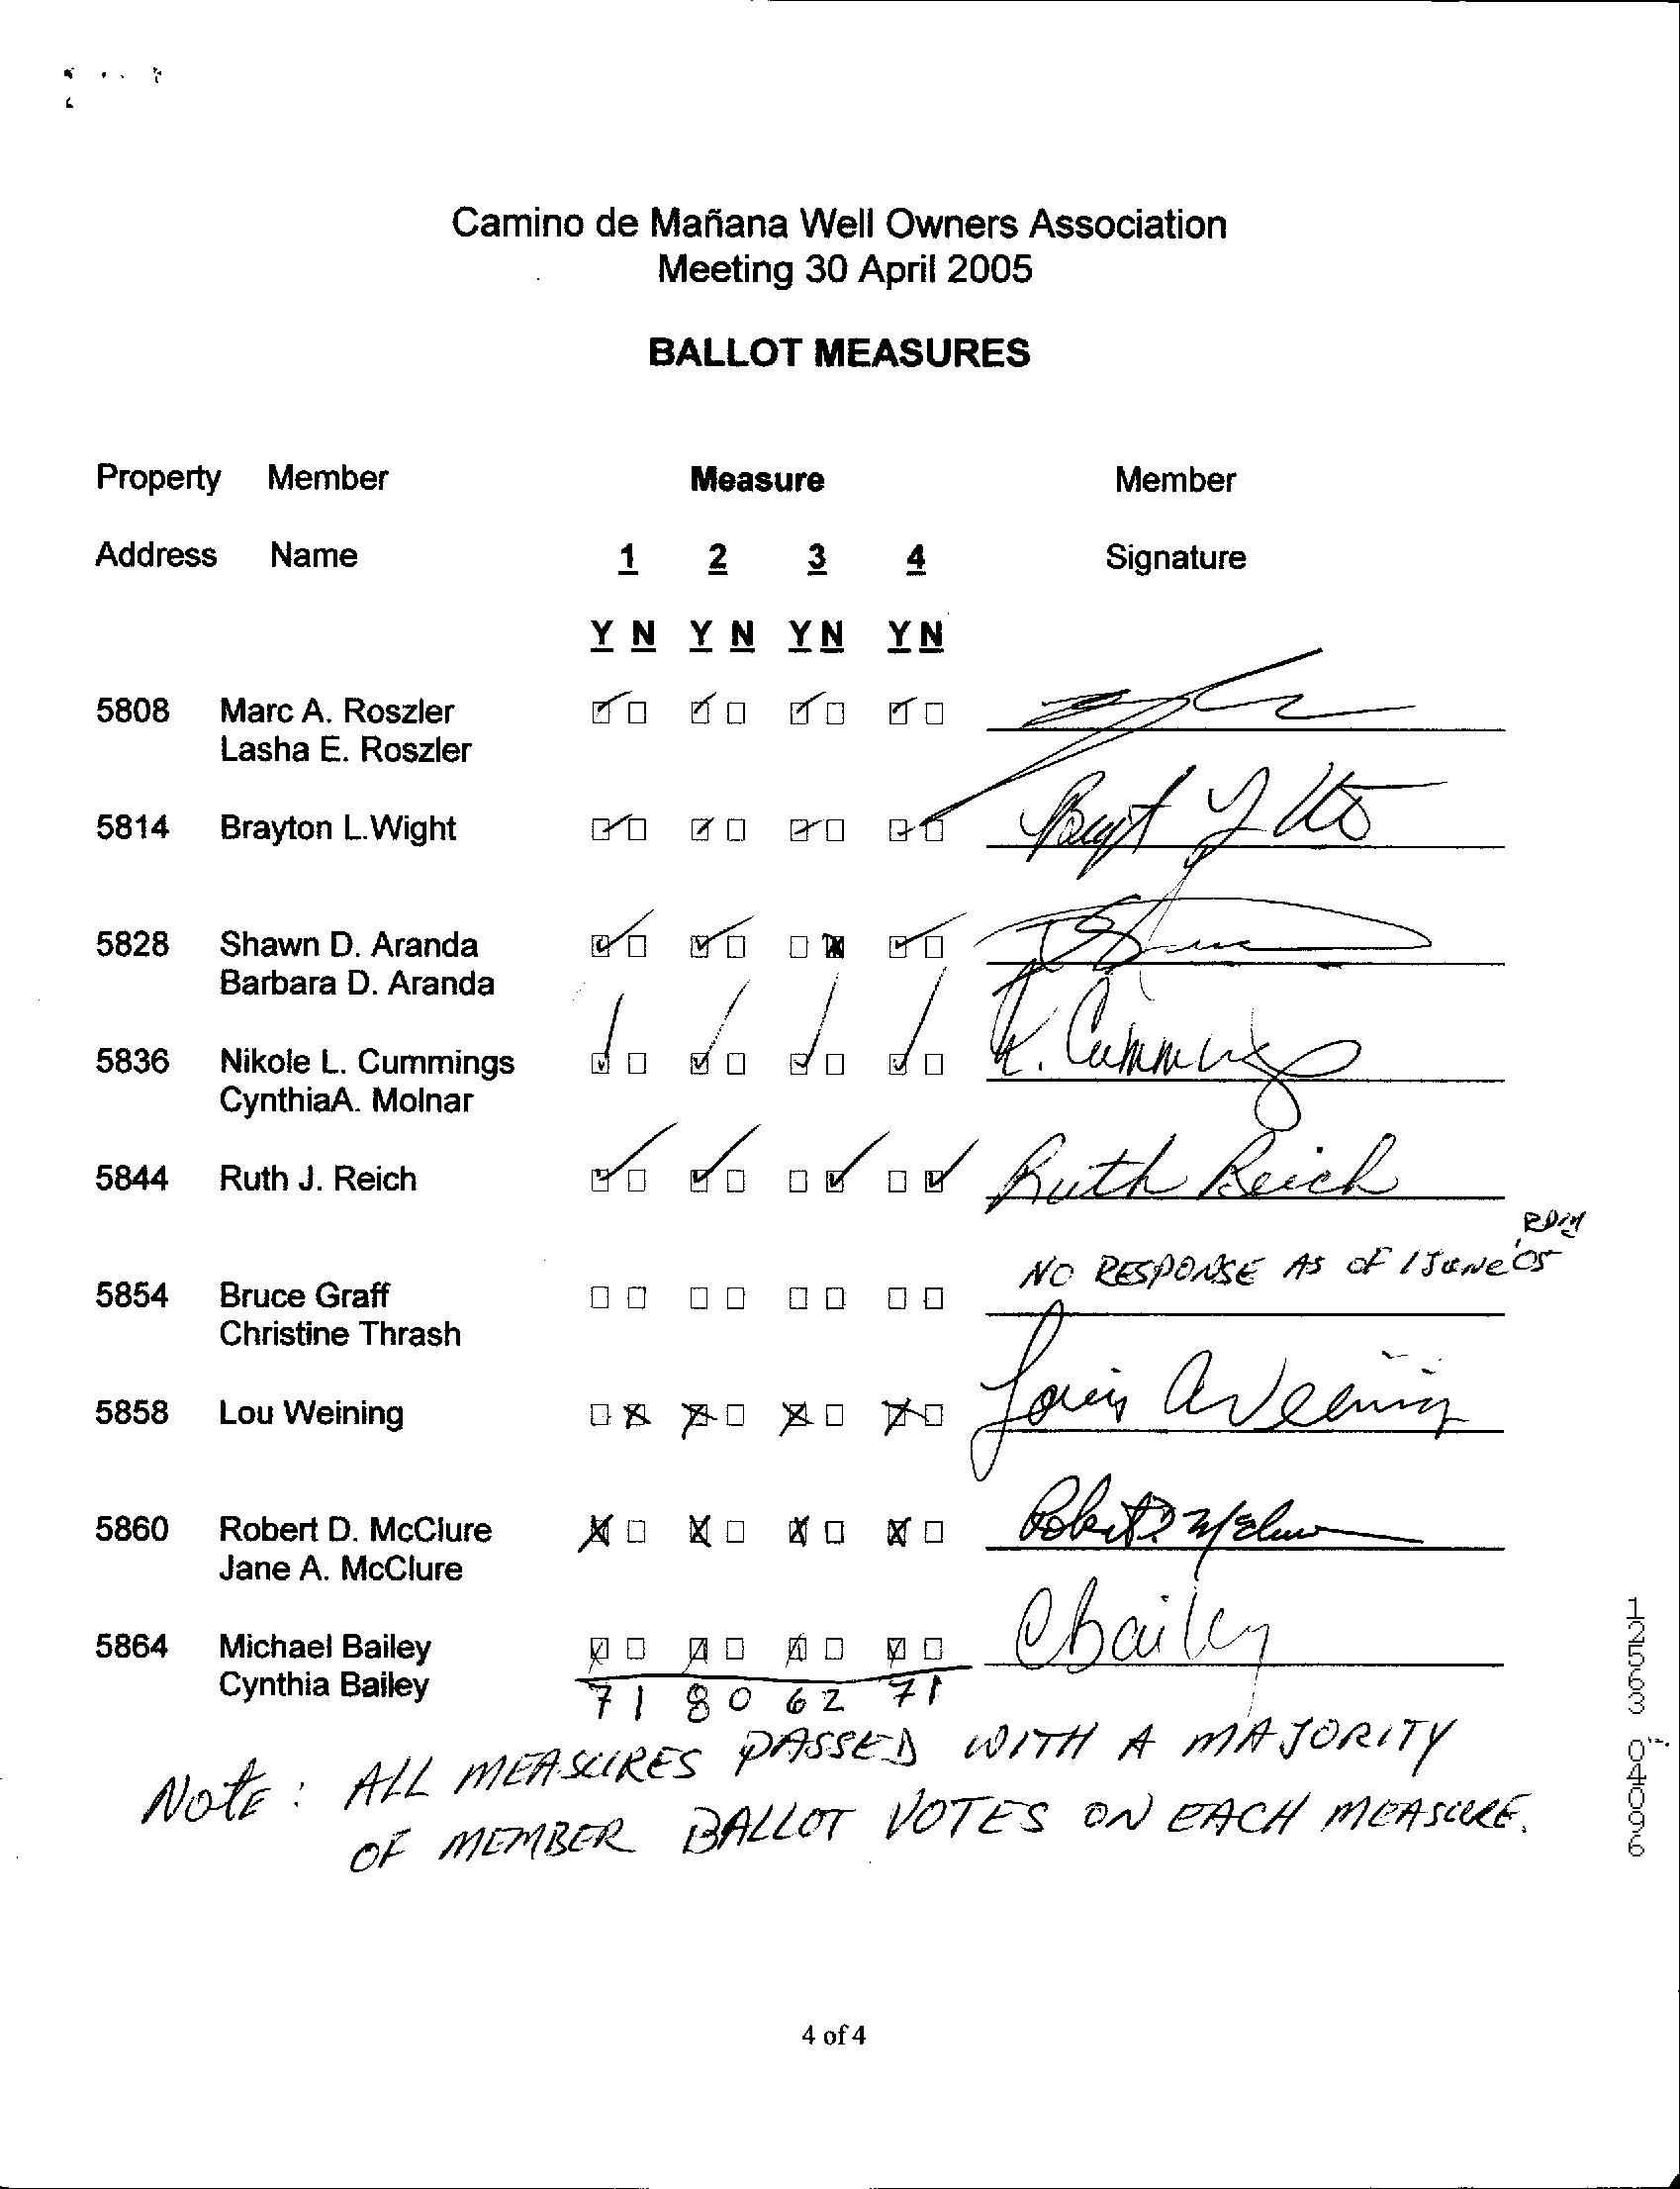 Camino de Mañana Well Owners Association
Meeting 30 April 2005
BALLOT MEASURES
Property Member Measure Member
Address Name 1 2 3 4 Signature
Y N Y N Y N Y N
5808 Marc A. Roszler
Lasha E. Roszler
5814 Brayton L.Wight
5828 Shawn D. Aranda
Barbara D. Aranda
5836 Nikole L. Cummings K. Cummings
CynthiaA. Molnar
5844 Ruth J. Reich Ruth Reich
RDM
NO RESPONSE AS OF 1 June '05
5854 Bruce Graff
Christine Thrash
5858 Lou Weining Louis A Weining
5860 Robert D. McClure Robert D. McClure
Jane A. McClure
5864 Michael Bailey CBailey
Cynthia Bailey
7 1 8 0 6 2 7 1
NOTE: ALL MEASURES PASSED WITH A MAJORITY
OF MEMBER BALLOT VOTES ON EACH MEASURE.
12563 04096
4 of 4